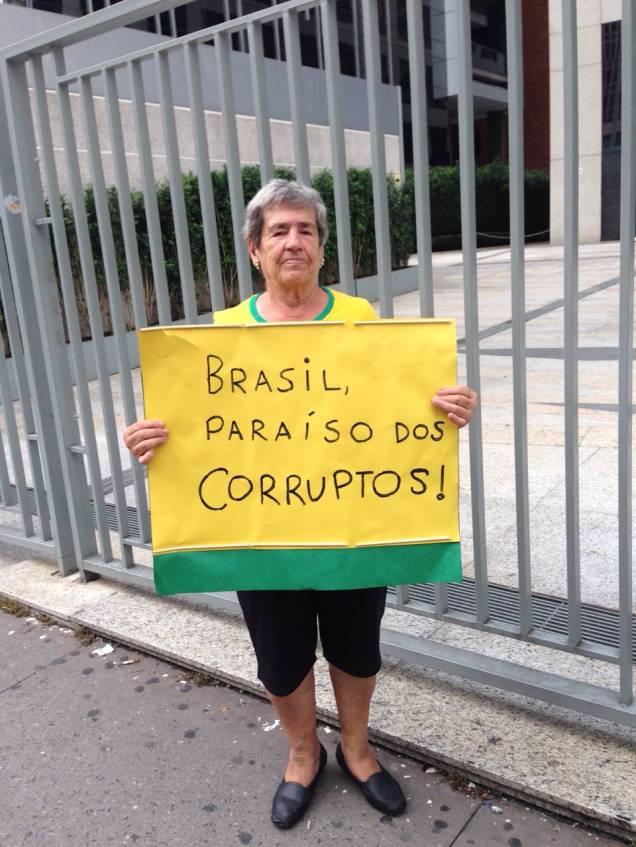 BRASIL,
PARAÍSO DOS
CORRUPTOS!